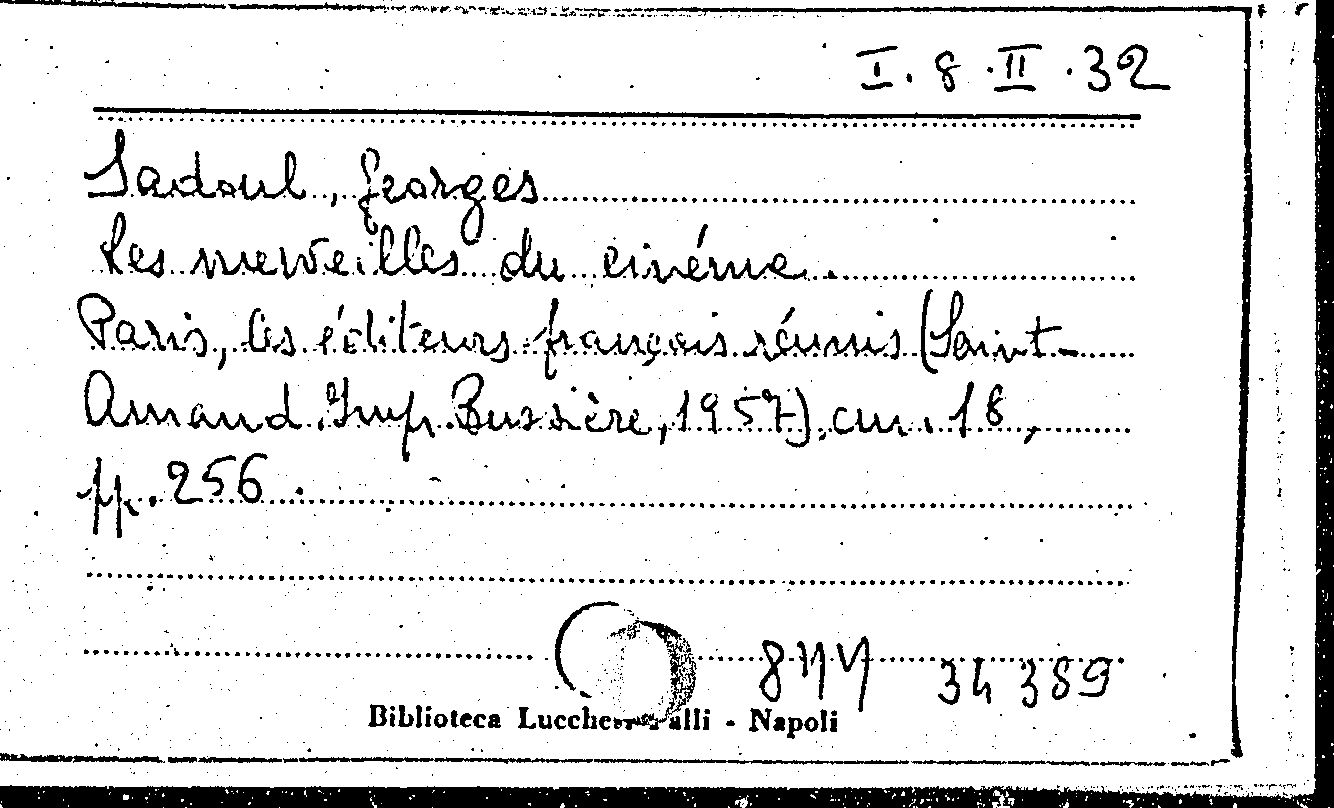 I. 8. II. 32
Sadoul, Georges
Les merveilles du cinéma.
Paris, les éditeurs français réunis (Saint-
Amand. Imp. Bussière, 1957). cm. 18,
pp. 256.
34389
Biblioteca - Napoli